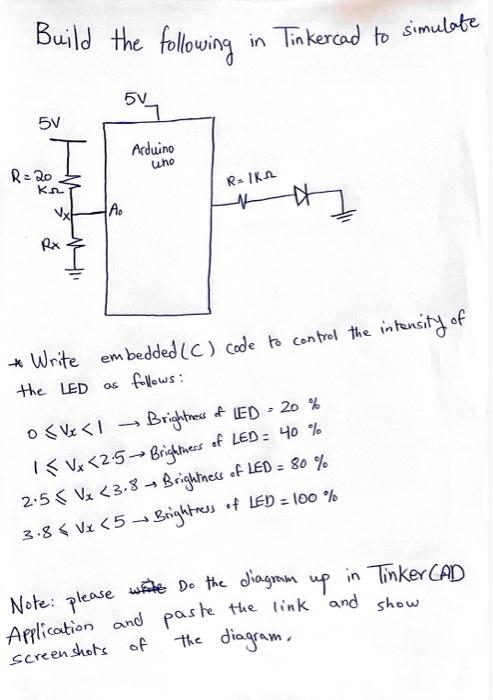 Build the following in Tinkercad to simulate
5V
5V
Arduino
uno
R = 20
KΩ
R = 1KΩ
Vx
A0
Rx
* Write embedded (C) code to control the intensity of
the LED as follows:
0 ≤ Vx < 1 → Brightness of LED = 20 %
1 ≤ Vx < 2.5 → Brightness of LED = 40 %
2.5 ≤ Vx < 3.8 → Brightness of LED = 80 %
3.8 ≤ Vx < 5 → Brightness of LED = 100 %
Note: please Do the diagram up in TinkerCAD
Application and paste the link and show
screenshots of the diagram.